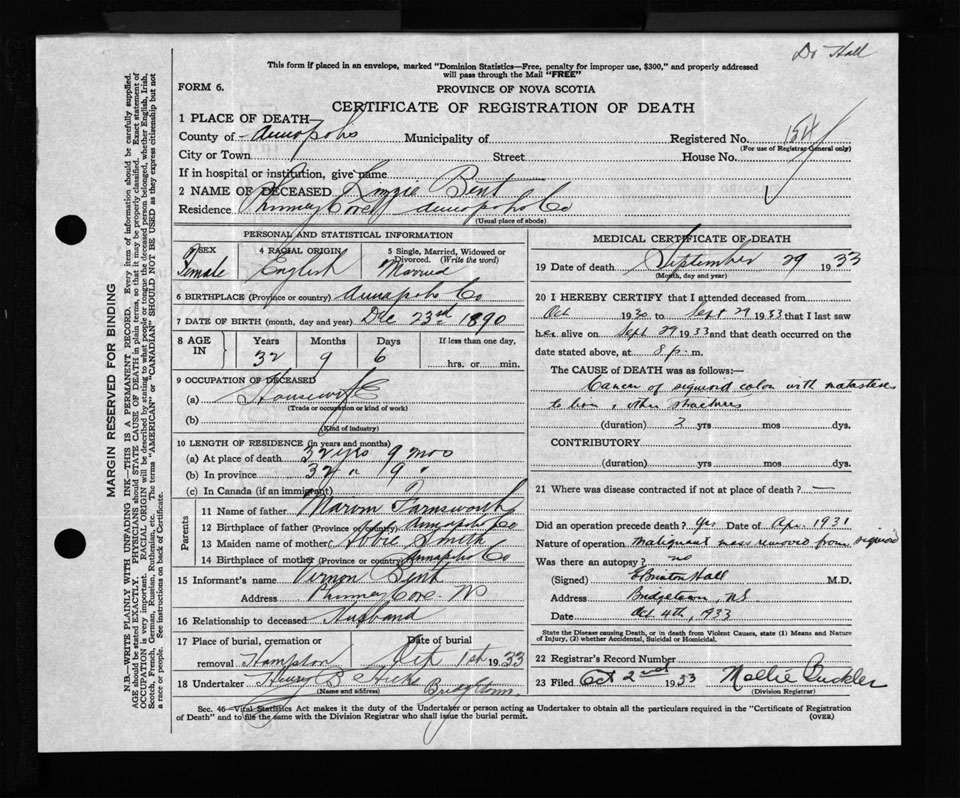 Dr Hall
This form if placed in an envelope, marked "Dominion Statistics—Free, penalty for improper use, $300," and properly addressed
will pass through the Mail "FREE"
FORM 6.
PROVINCE OF NOVA SCOTIA
CERTIFICATE OF REGISTRATION OF DEATH
1 PLACE OF DEATH
County of Annapolis Municipality of Registered No. 154
(For use of Registrar-General only)
City or Town Street House No.
If in hospital or institution, give name
2 NAME OF DECEASED Lizzie Bent
Residence Phinney Cove Annapolis Co
(Usual place of abode)
PERSONAL AND STATISTICAL INFORMATION
SEX 4 RACIAL ORIGIN 5 Single, Married, Widowed or Divorced. (Write the word)
Female English Married
6 BIRTHPLACE (Province or country) Annapolis Co
7 DATE OF BIRTH (month, day and year) Dec 23rd 1890
8 AGE IN Years Months Days If less than one day,
32 9 6 hrs. or min.
9 OCCUPATION OF DECEASED
(a) Housewife
(Trade or occupation or kind of work)
(b)
(Kind of industry)
10 LENGTH OF RESIDENCE (in years and months)
(a) At place of death 32 yrs 9 mos
(b) In province 32 " 9 "
(c) In Canada (if an immigrant)
Parents
11 Name of father Farnsworth
12 Birthplace of father (Province or country) Annapolis Co
13 Maiden name of mother Abbie Smith
14 Birthplace of mother (Province or country) Annapolis Co
15 Informant's name Vernon Bent
Address Phinney Cove NS
16 Relationship to deceased Husband
17 Place of burial, cremation or Date of burial
removal Hampton Oct 1st 1933
18 Undertaker Henry B Hicks Bridgetown
(Name and address)
MEDICAL CERTIFICATE OF DEATH
19 Date of death September 29 1933
(Month, day and year)
20 I HEREBY CERTIFY that I attended deceased from
Oct 1930 to Sept 29 1933 that I last saw
her alive on Sept 29 1933 and that death occurred on the
date stated above, at 8 p. m.
The CAUSE of DEATH was as follows:—
Cancer of sigmoid colon with metastases
to liver & other structures
(duration) 3 yrs mos dys.
CONTRIBUTORY
(duration) yrs mos dys.
21 Where was disease contracted if not at place of death? —
Did an operation precede death? Yes Date of Apr. 1931
Nature of operation Malignant mass removed from sigmoid
Was there an autopsy? no
(Signed) E Brinton Hall M.D.
Address Bridgetown, NS
Date Oct. 4th, 1933
State the Disease causing Death, or in death from Violent Causes, state (1) Means and Nature
of Injury, (2) whether Accidental, Suicidal or Homicidal.
22 Registrar's Record Number
23 Filed Oct 2nd 1933 Nellie Buckler
(Division Registrar)
Sec. 46—Vital Statistics Act makes it the duty of the Undertaker or person acting as Undertaker to obtain all the particulars required in the "Certificate of Registration
of Death" and to file the same with the Division Registrar who shall issue the burial permit. (OVER)
MARGIN RESERVED FOR BINDING
N.B.—WRITE PLAINLY WITH UNFADING INK—THIS IS A PERMANENT RECORD. Every item of information should be carefully supplied.
AGE should be stated EXACTLY. PHYSICIANS should STATE CAUSE OF DEATH in plain terms, so that it may be properly classified. Exact statement of
OCCUPATION is very important. RACIAL ORIGIN will be described by stating to what people or tongue the deceased person belonged, whether English, Irish,
Scotch, French, German, Russian, Ruthenian, etc. The terms "AMERICAN" or "CANADIAN" SHOULD NOT BE USED as they express citizenship but not
a race or people. See instructions on back of Certificate.